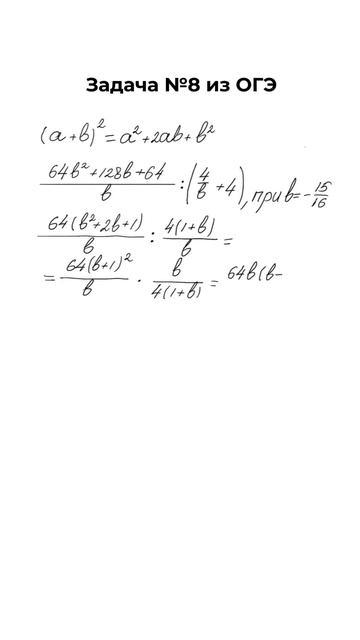 Задача №8 из ОГЭ
(a+b)² = a²+2ab+b²
64b²+128b+64 / b : (4/b + 4), при b = -15/16
64(b²+2b+1) / b : 4(1+b) / b =
= 64(b+1)² / b · b / 4(1+b) = 64b(b-